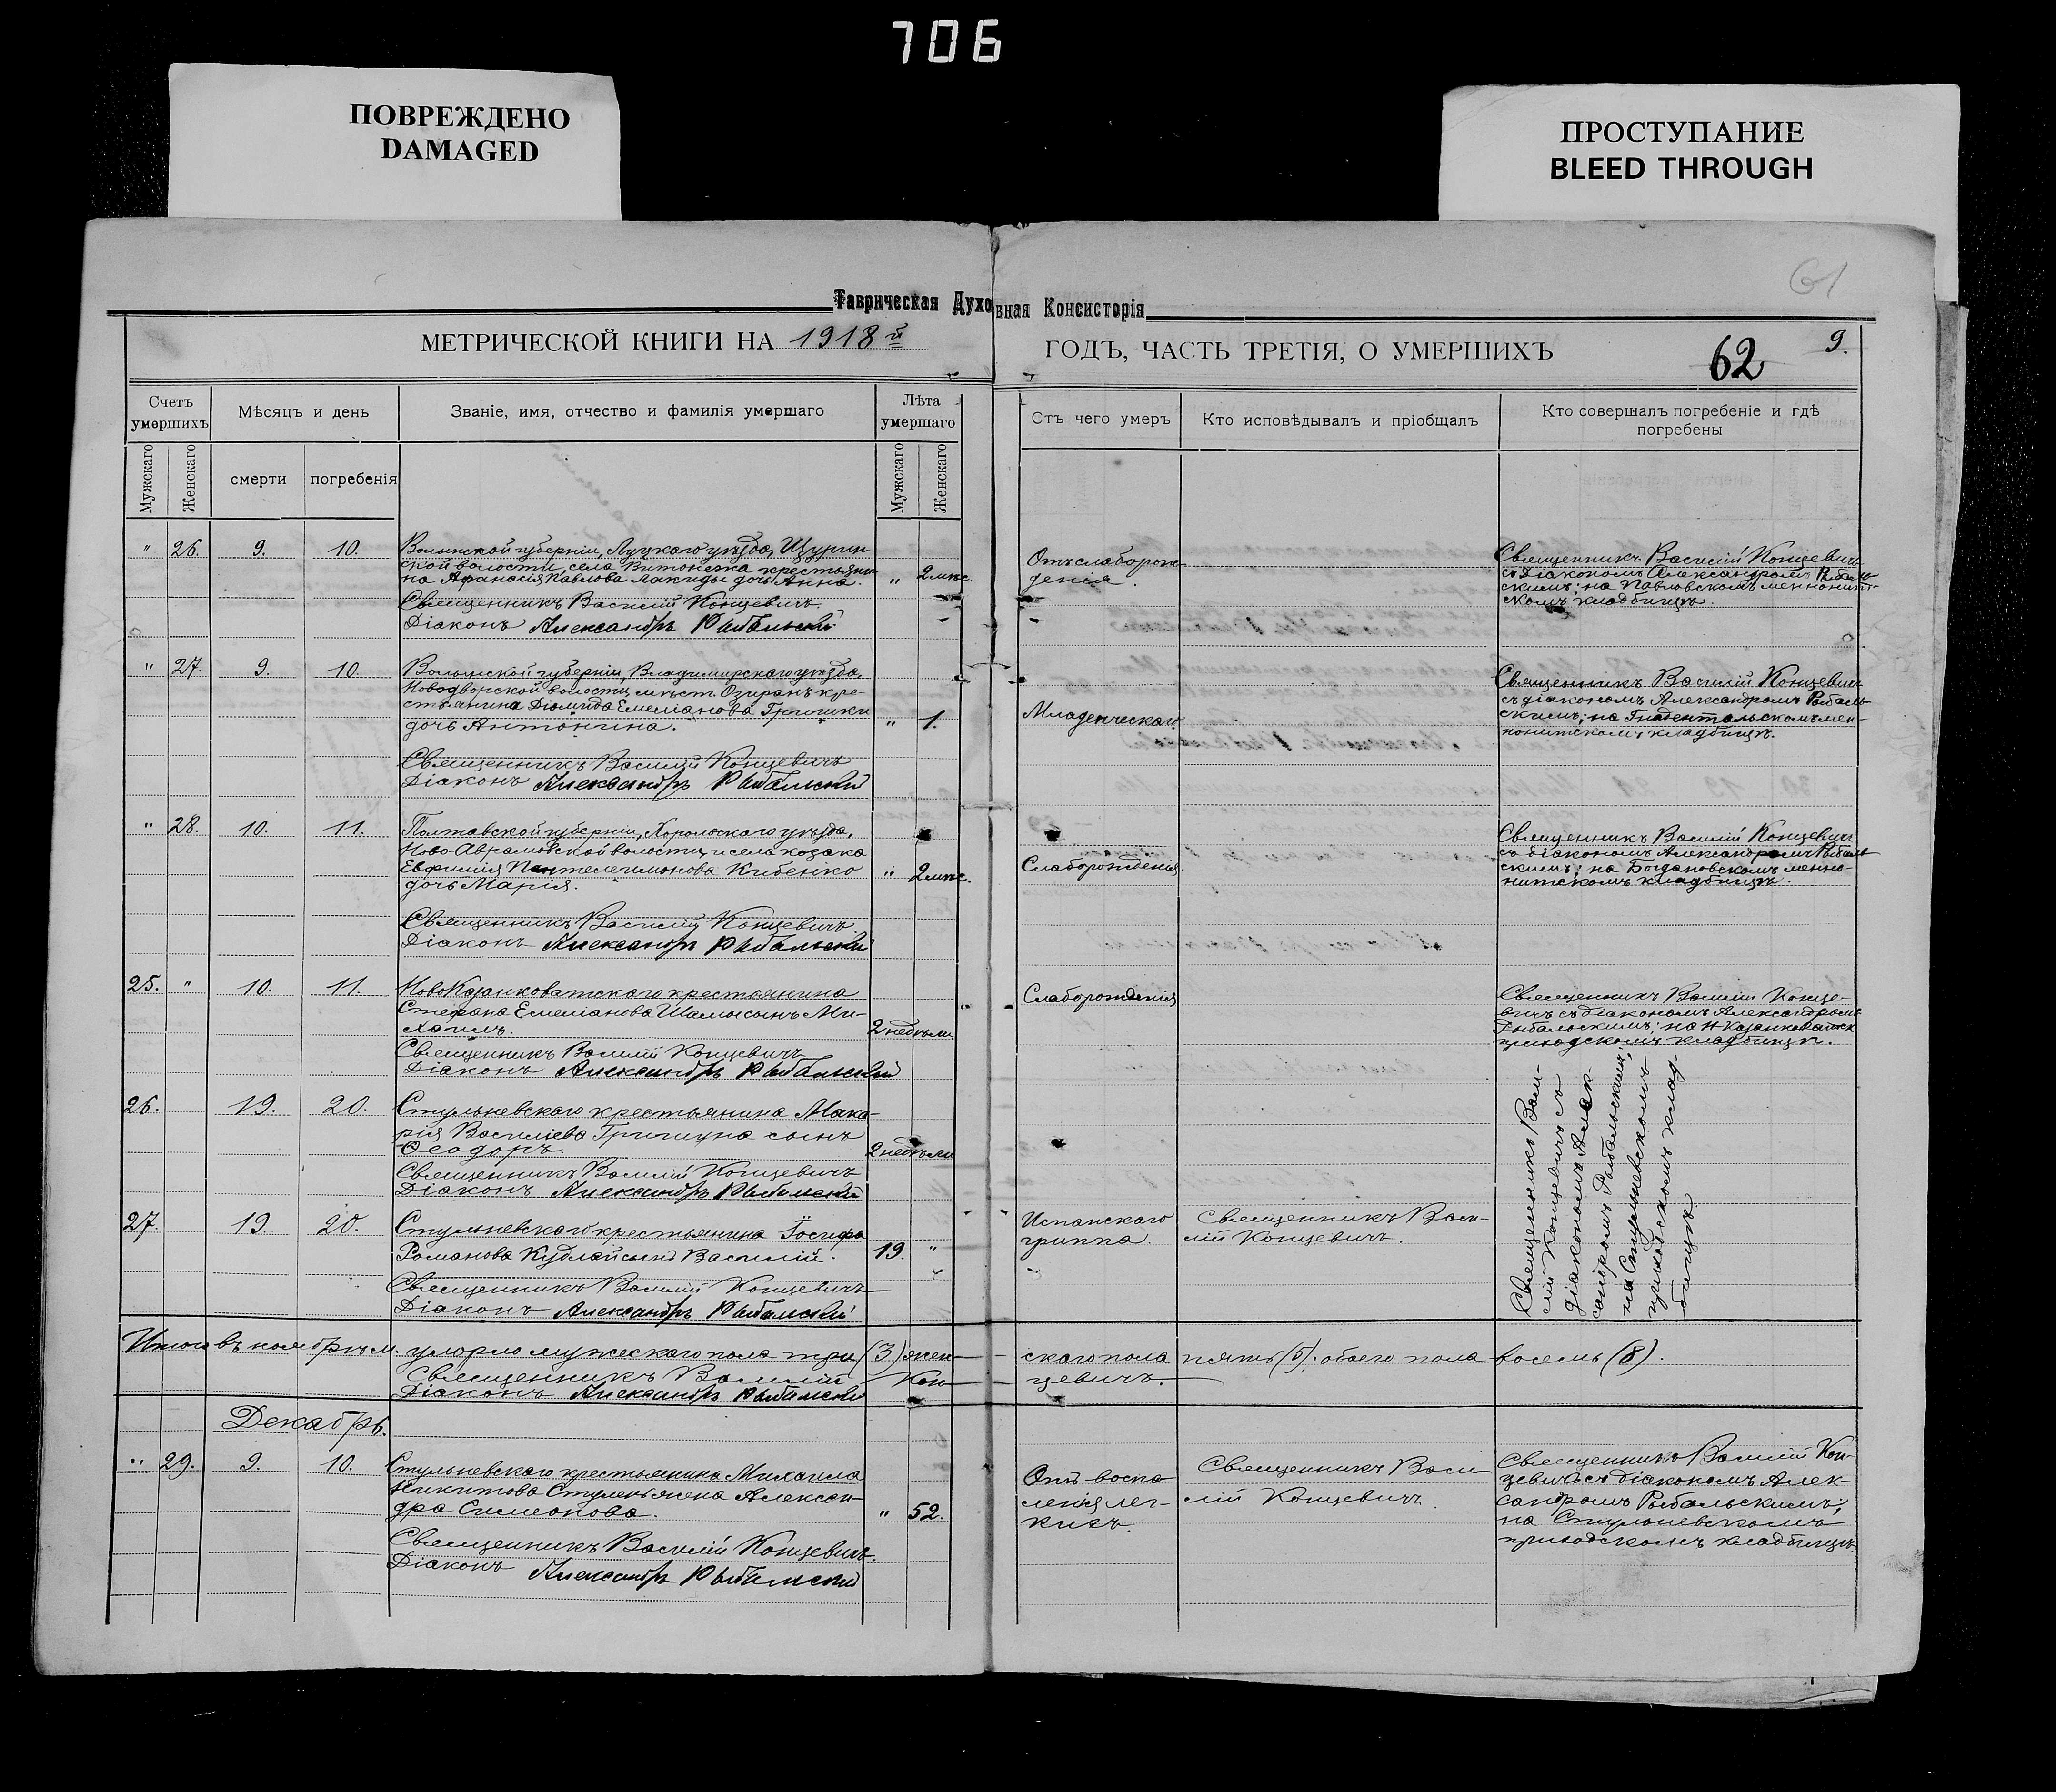 706
ПОВРЕЖДЕНО
DAMAGED
ПРОСТУПАНИЕ
BLEED THROUGH
61
Таврическая Духовная Консисторія
МЕТРИЧЕСКОЙ КНИГИ НА 1918й
ГОДЪ, ЧАСТЬ ТРЕТІЯ, О УМЕРШИХЪ
62
9.
Счетъ умершихъ
Мѣсяцъ и день
Званіе, имя, отчество и фамилія умершаго
Лѣта умершаго
Отъ чего умеръ
Кто исповѣдывалъ и пріобщалъ
Кто совершалъ погребеніе и гдѣ погребены
Мужскаго
Женскаго
смерти
погребенія
Мужскаго
Женскаго
" 26. 9. 10.
Волынской губерніи, Луцкаго уѣзда, Щурин-
ской волости, села Витонежа крестьяни-
на Афанасія Павлова Лакиды дочь Анна.
" 2 мѣс.
Священникъ Василій Концевичъ.
Діаконъ Александръ Рыбальскій
Отъ слаборож-
денія.
Священникъ Василій Концевичъ
съ діакономъ Александромъ Рыбаль-
скимъ; на Павловскомъ меннонит-
скомъ кладбищѣ.
" 27. 9. 10.
Волынской губерніи, Владимирскаго уѣзда,
Новодворской волости, мѣст. Озиранъ кре-
стьянина Діомида Емеліанова Гришки
дочь Антонина.
" 1.
Священникъ Василій Концевичъ
Діаконъ Александръ Рыбальскій
Младенческаго
Священникъ Василій Концевичъ
съ діакономъ Александромъ Рыбаль-
скимъ; на Гнадентальскомъ мен-
нонитскомъ кладбищѣ.
" 28. 10. 11.
Полтавской губерніи, Хорольскаго уѣзда,
Ново-Аврамовской волости и села козака
Евфимія Пантелеимонова Кибенко
дочь Марія.
" 2 мѣс.
Священникъ Василій Концевичъ
Діаконъ Александръ Рыбальскій
Слаборожденія
Священникъ Василій Концевичъ
съ діакономъ Александромъ Рыбаль-
скимъ; на Богдановскомъ менно-
нитскомъ кладбищѣ.
25. " 10. 11.
Ново Казанковатскаго крестьянина
Стефана Емеліанова Шамы сынъ Ми-
хаилъ.
2 недѣли
Священникъ Василій Концевичъ
Діаконъ Александръ Рыбальскій
Слаборожденія
Священникъ Василій Конце-
вичъ съ діакономъ Александромъ
Рыбальскимъ; на Н-Казанковатск
приходскомъ кладбищѣ.
26. 19. 20.
Стульневскаго крестьянина Мака-
рія Василіева Грицуна сынъ
Ѳеодоръ.
2 недѣли
Священникъ Василій Концевичъ
Діаконъ Александръ Рыбальскій
Священникъ Васи-
лій Концевичъ съ
діакономъ Алек-
сандромъ Рыбальскимъ;
на Стульневскомъ
приходскомъ клад-
бищѣ.
27. 19. 20.
Стульневскаго крестьянина Іосифа
Романова Кудлай сынъ Василій.
19. "
Священникъ Василій Концевичъ
Діаконъ Александръ Рыбальскій
Испанскаго
гриппа.
Священникъ Васи-
лій Концевичъ.
Итого въ ноябрѣ м. умерло мужескаго пола три (3) жен-
скаго пола пять (5); обоего пола восемь (8).
Священникъ Василій Кон-
цевичъ.
Діаконъ Александръ Рыбальскій
Декабрь.
" 29. 9. 10.
Стульневскаго крестьянина Михаила
Никитова Стулень жена Алексан-
дра Симеонова.
" 52.
Священникъ Василій Концевичъ.
Діаконъ Александръ Рыбальскій
Отъ воспа
ленія лег-
кихъ.
Священникъ Васи
лій Концевичъ.
Священникъ Василій Кон-
цевичъ съ діакономъ Алек-
сандромъ Рыбальскимъ;
на Стульневскомъ
приходскомъ кладбищѣ.